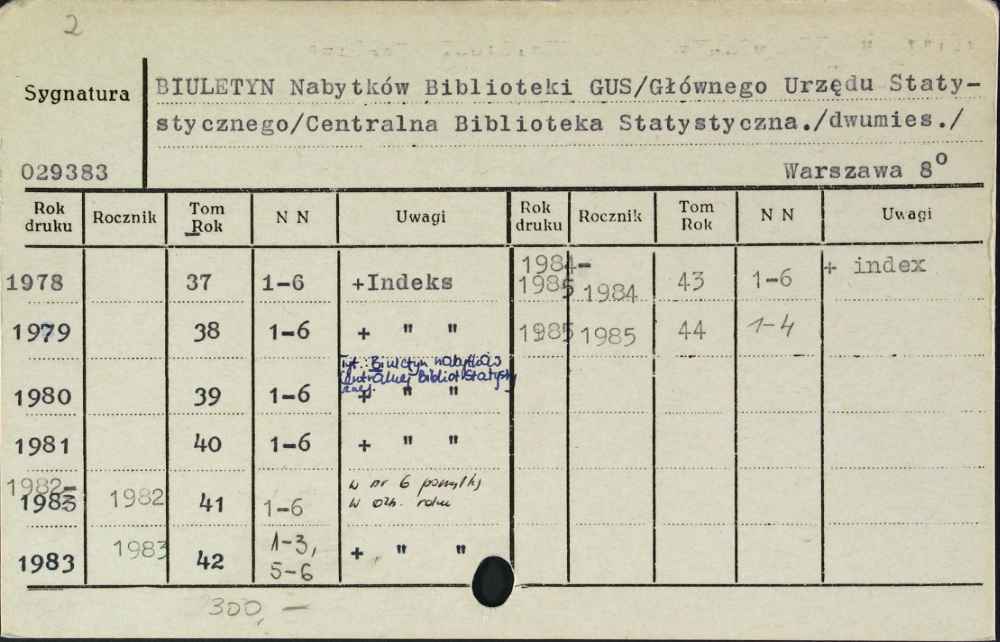 2
Sygnatura
BIULETYN Nabytków Biblioteki GUS/Głównego Urzędu Staty-
stycznego/Centralna Biblioteka Statystyczna./dwumies./
029383
Warszawa 8⁰
Rok druku Rocznik Tom Rok N N Uwagi Rok druku Rocznik Tom Rok N N Uwagi
1978 37 1-6 +Indeks 1984-1985 1984 43 1-6 + index
1979 38 1-6 + " " 1985 1985 44 1-4
Tyt.: Biuletyn nabytków
Centralnej Bibliot. Statysty
cznej.
1980 39 1-6 + " "
1981 40 1-6 + " "
1982-1983 1982 41 1-6 w nr 6 pomyłki
w ozn. roku
1983 1983 42 1-3, 5-6 + " "
300,-